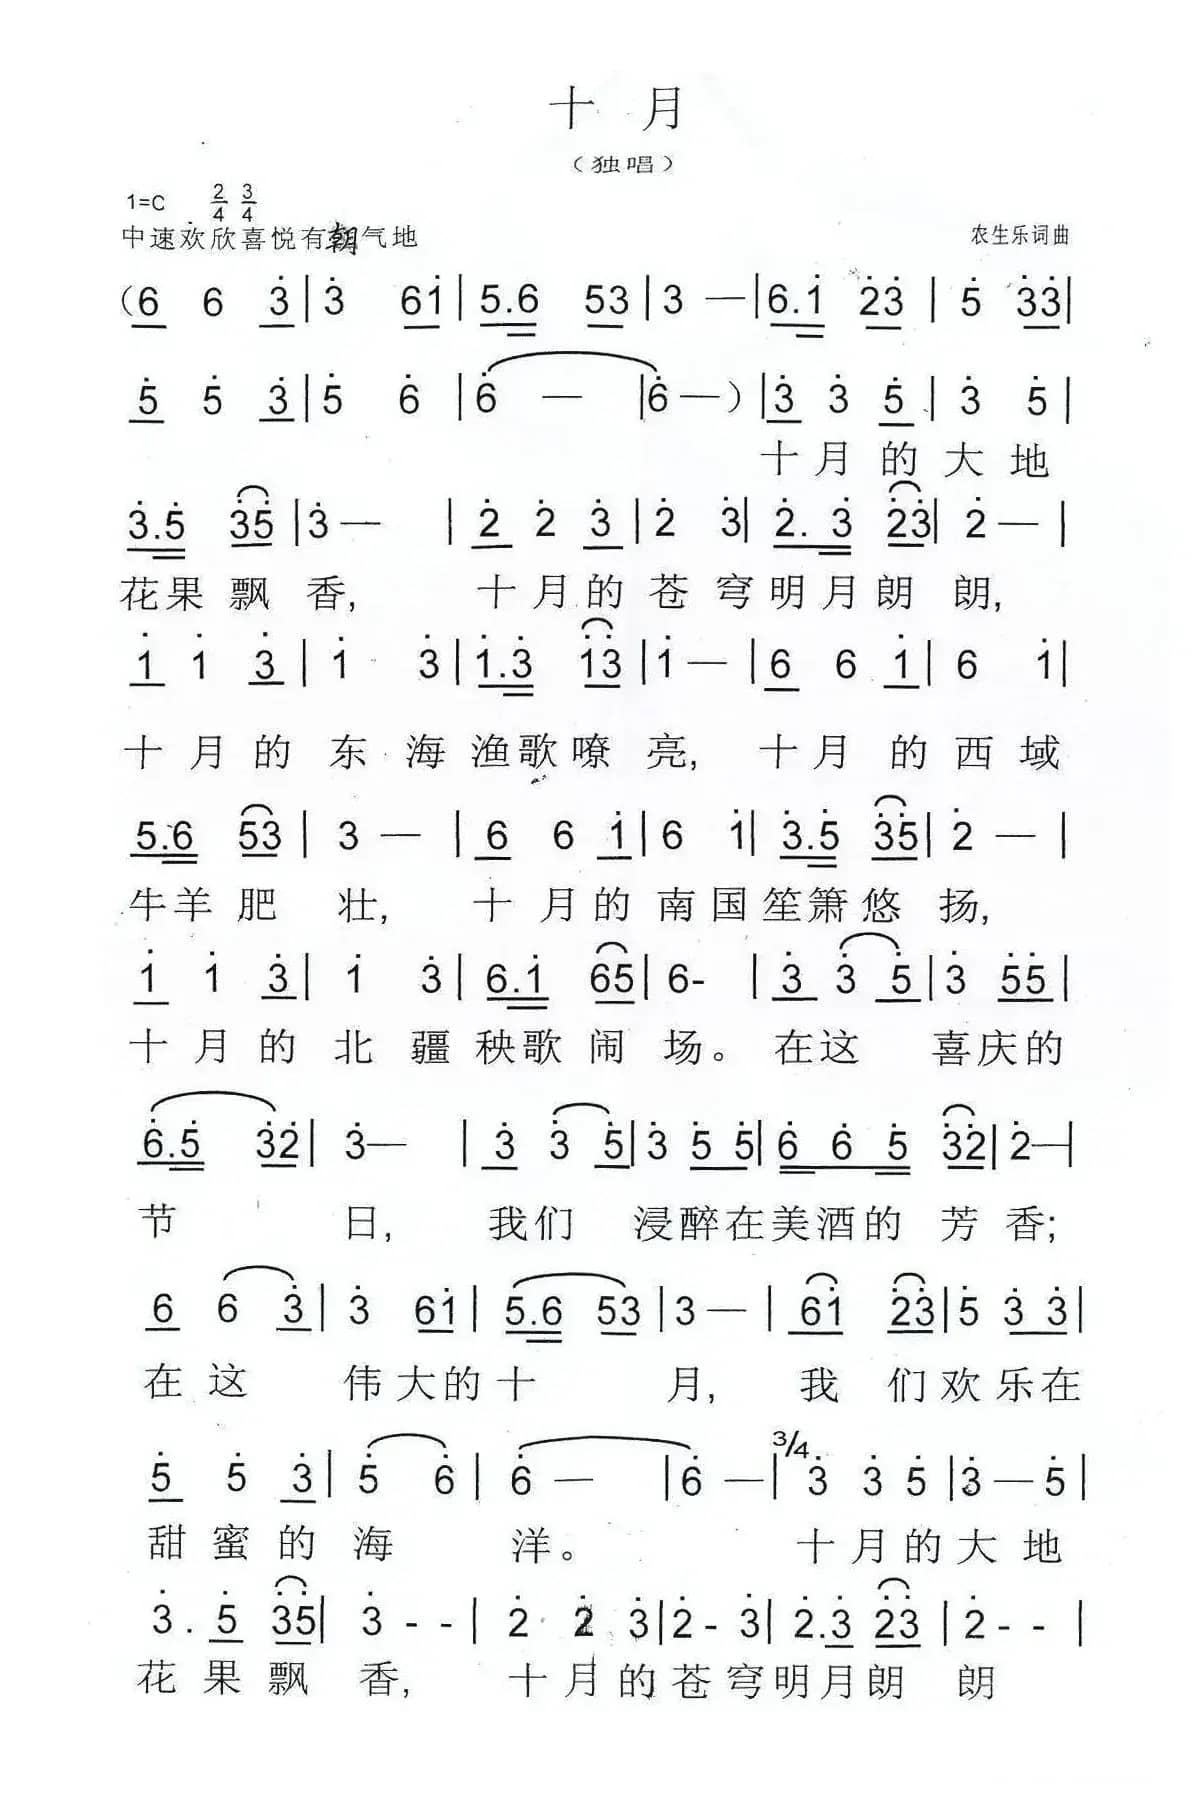 十 月
（独唱）
1=C 2/4 3/4
中速欢欣喜悦有朝气地 农生乐词曲
(6 6 3̇ | 3̇ 6i̇ | 5.6 53 | 3 — | 6.i̇ 2̇3̇ | 5̇ 3̇3̇ |
5̇ 5̇ 3̇ | 5̇ 6̇ | 6̇ — | 6̇ — ) | 3̇ 3̇ 5̇ | 3̇ 5̇ |
十月的大地
3̇.5̇ 3̇5̇ | 3̇ — | 2̇ 2̇ 3̇ | 2̇ 3̇ | 2̇. 3̇ 2̇3̇ | 2̇ — |
花果飘香, 十月的苍穹明月朗朗,
1̇ 1̇ 3̇ | 1̇ 3̇ | 1̇.3̇ 1̇3̇ | 1̇ — | 6 6 1̇ | 6 1̇ |
十月的东海渔歌嘹亮, 十月的西域
5.6 53 | 3 — | 6 6 1̇ | 6 1̇ | 3̇.5̇ 3̇5̇ | 2̇ — |
牛羊肥壮, 十月的南国笙箫悠扬,
1̇ 1̇ 3̇ | 1̇ 3̇ | 6.1̇ 65 | 6- | 3̇ 3̇ 5̇ | 3̇ 5̇5̇ |
十月的北疆秧歌闹场。在这喜庆的
6̇.5̇ 3̇2̇ | 3̇ — | 3̇ 3̇ 5̇ | 3̇ 5̇ 5̇ | 6̇ 6̇ 5̇ 3̇2̇ | 2̇ — |
节日, 我们浸醉在美酒的芳香;
6 6 3̇ | 3̇ 61̇ | 5.6 53 | 3 — | 61̇ 2̇3̇ | 5̇ 3̇ 3̇ |
在这伟大的十月, 我们欢乐在
5̇ 5̇ 3̇ | 5̇ 6̇ | 6̇ — | 6̇ — | 3/4 3̇ 3̇ 5̇ | 3̇ — 5̇ |
甜蜜的海洋。 十月的大地
3̇. 5̇ 3̇5̇ | 3̇ - - | 2̇ 2̇ 3̇ | 2̇ - 3̇ | 2̇.3̇ 2̇3̇ | 2̇ - - |
花果飘香, 十月的苍穹明月朗朗